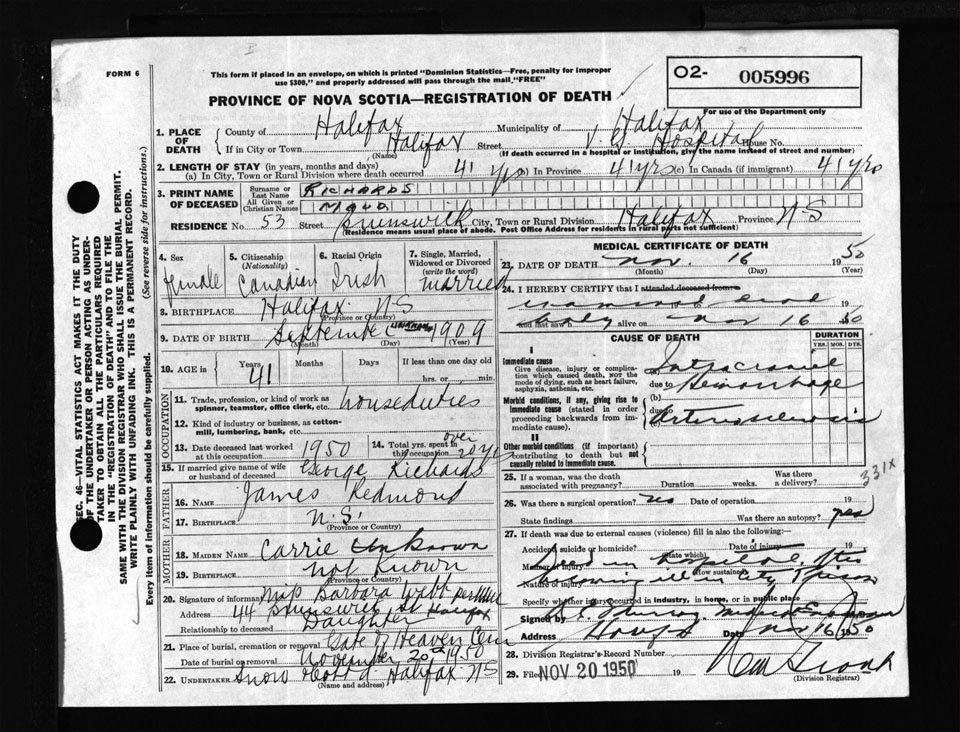 FORM 6
This form if placed in an envelope, on which is printed "Dominion Statistics—Free, penalty for improper
use $300," and properly addressed will pass through the mail, "FREE"
O2- 005996
For use of the Department only
PROVINCE OF NOVA SCOTIA—REGISTRATION OF DEATH
1. PLACE OF DEATH { County of Halifax Municipality of Halifax
If in City or Town Halifax Street V G Hospital House No.
(Name) (If death occurred in a hospital or institution, give the name instead of street and number)
2. LENGTH OF STAY (in years, months and days)
(a) In City, Town or Rural Division where death occurred 41 yrs (b) In Province 41 yrs (c) In Canada (if immigrant) 41 yrs
3. PRINT NAME OF DECEASED { Surname or Last Name RICHARDS
All Given or Christian Names MAUD.
RESIDENCE No. 53 Street Brunswick City, Town or Rural Division Halifax Province N-S
(Residence means usual place of abode. Post Office Address for residents in rural parts not sufficient)
4. Sex female
5. Citizenship (Nationality) Canadian
6. Racial Origin Irish
7. Single, Married, Widowed or Divorced (write the word) married
8. BIRTHPLACE Halifax N-S
(Province or Country)
9. DATE OF BIRTH September unknown 1909
(Month) (Day) (Year)
10. AGE in { Years 41 Months Days If less than one day old
hrs. or min.
OCCUPATION
11. Trade, profession, or kind of work as
spinner, teamster, office clerk, etc. houseduties
12. Kind of industry or business, as cotton-
mill, lumbering, bank, etc.
13. Date deceased last worked at this occupation 1950
14. Total yrs. spent in this occupation over 20 yrs
15. If married give name of wife or husband of deceased George Richards
FATHER
16. Name James Redmond
17. Birthplace N.S.
(Province or Country)
MOTHER
18. Maiden Name Carrie Unknown
19. Birthplace not Known
(Province or Country)
20. Signature of informant Miss Barbara Webb
Address 44 Brunswick St Halifax
Relationship to deceased Daughter
21. Place of burial, cremation or removal Gate of Heaven Cem
Date of burial or removal November 20th 1950
22. Undertaker Snow & Co Ltd Halifax N-S
(Name and address)
MEDICAL CERTIFICATE OF DEATH
23. DATE OF DEATH Nov. 16 1950
(Month) (Day) (Year)
24. I HEREBY CERTIFY that I attended deceased from
examined 19 to 19
and last saw h body alive on Nov 16 50
CAUSE OF DEATH
DURATION
YRS. MOS. DYS.
I
Immediate cause
Give disease, injury or complica-
tion which caused death, NOT the
mode of dying, such as heart failure,
asphyxia, asthenia, etc.
(a) Intracranial
due to Hemorrhage
Morbid conditions, if any, giving rise to
immediate cause (stated in order
proceeding backwards from im-
mediate cause).
(b)
due to Arteriosclerosis
II
Other morbid conditions (if important)
contributing to death but not
causally related to immediate cause.
331X
25. If a woman, was the death associated with pregnancy? Duration weeks. Was there a delivery?
26. Was there a surgical operation? no Date of operation 19
State findings Was there an autopsy? yes
27. If death was due to external causes (violence) fill in also the following:
Accident, suicide or homicide? Date of injury 19
(State which)
Manner of injury Died in hospital after
(How sustained)
Nature of injury becoming ill in City Prison
Specify whether injury occurred in industry, in home, or in public place
Signed by Medical Examiner
Address Date Nov 16 1950
28. Division Registrar's Record Number
29. Filed NOV 20 1950 19
(Division Registrar)
SEC. 46—VITAL STATISTICS ACT MAKES IT THE DUTY
OF THE UNDERTAKER OR PERSON ACTING AS UNDER-
TAKER TO OBTAIN ALL THE PARTICULARS REQUIRED
IN THE "REGISTRATION OF DEATH" AND TO FILE THE
SAME WITH THE DIVISION REGISTRAR WHO SHALL ISSUE THE BURIAL PERMIT.
WRITE PLAINLY WITH UNFADING INK. THIS IS A PERMANENT RECORD.
Every item of information should be carefully supplied. (See reverse side for instructions.)